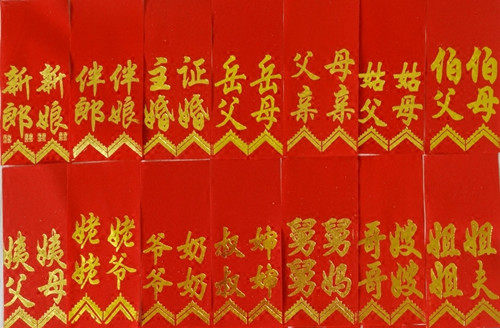 新郎
新娘
伴郎
伴娘
主婚
证婚
岳父
岳母
父亲
母亲
姑父
姑母
伯父
伯母
姨父
姨母
姥姥
姥爷
爷爷
奶奶
叔叔
婶婶
舅舅
舅妈
哥哥
嫂嫂
姐姐
姐夫